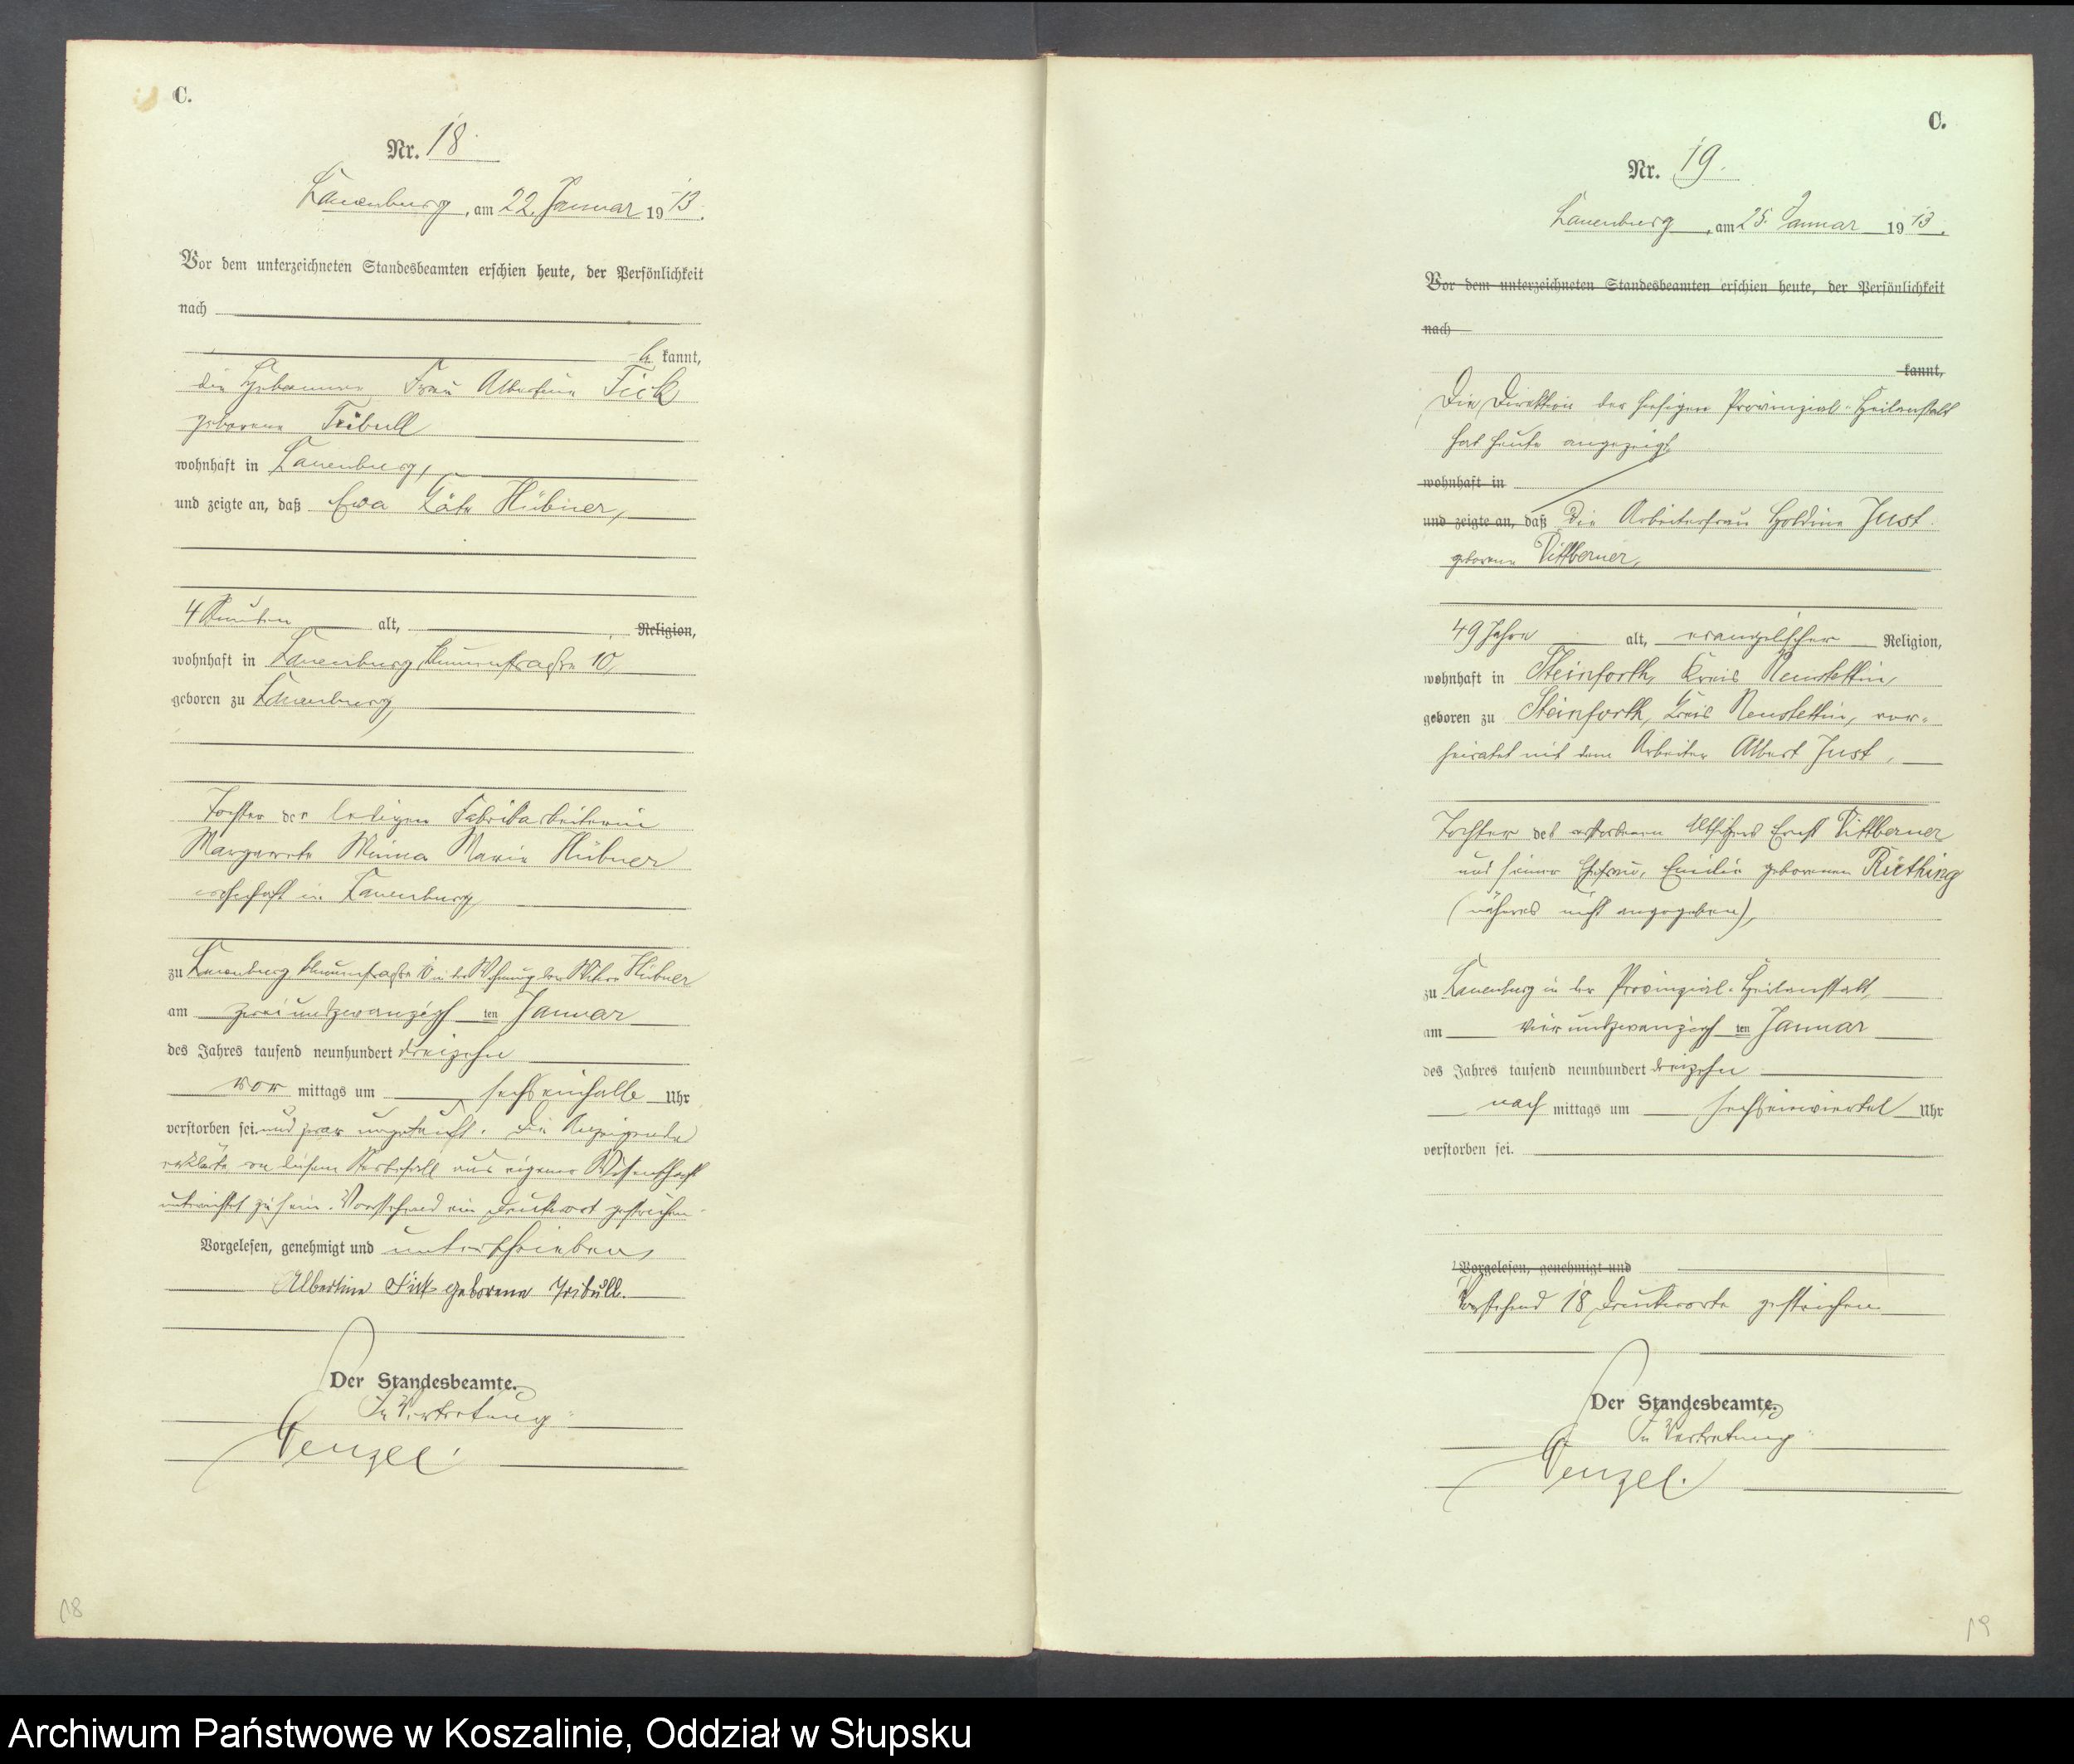 C.
Nr. 18.
Lauenburg, am 22. Januar 1913.
Vor dem unterzeichneten Standesbeamten erschien heute, der Persönlichkeit
nach
be kannt,
die Hebamme Frau Albertine Fick
geborene Tribull
wohnhaft in Lauenburg,
und zeigte an, daß Eva Käte Hübner,
4 Stunden alt, Religion,
wohnhaft in Lauenburg, Blumenstraße 10,
geboren zu Lauenburg,
Tochter der ledigen Fabrikarbeiterin
Margarete Minna Marie Hübner
wohnhaft in Lauenburg,
zu Lauenburg Blumenstraße 10 in der Wohnung der Witwe Hübner
am zweiundzwanzigsten Januar
des Jahres tausend neunhundert dreizehn
vor mittags um sechseinhalb Uhr
verstorben sei. und zwar ungetauft. Die Anzeigende
erklärte von diesem Sterbefall aus eigener Wissenschaft
unterrichtet zu sein. Vorstehend ein Druckwort gestrichen.
Vorgelesen, genehmigt und unterschrieben,
Albertine Fick geborene Tribull.
Der Standesbeamte.
In Vertretung
Wenzel.
18
C.
Nr. 19.
Lauenburg, am 25. Januar 1913.
Vor dem unterzeichneten Standesbeamten erschien heute, der Persönlichkeit
nach
kannt,
Die Direktion der hiesigen Provinzial-Heilanstalt
hat heute angezeigt
wohnhaft in
und zeigte an, daß die Arbeiterfrau Holdine Just
geborene Dittberner,
49 Jahre alt, evangelischer Religion,
wohnhaft in Steinforth, Kreis Neustettin,
geboren zu Steinforth, Kreis Neustettin, ver-
heiratet mit dem Arbeiter Albert Just,
Tochter des verstorbenen Altsitzers Ernst Dittberner
und seiner Ehefrau, Emilie geborenen Rüthing
(näheres nicht angegeben),
zu Lauenburg in der Provinzial-Heilanstalt,
am vierundzwanzigsten Januar
des Jahres tausend neunhundert dreizehn
nach mittags um sechseinviertel Uhr
verstorben sei.
Vorgelesen, genehmigt und
Vorstehend 18 Druckworte gestrichen.
Der Standesbeamte.
In Vertretung
Wenzel.
19
Archiwum Państwowe w Koszalinie, Oddział w Słupsku